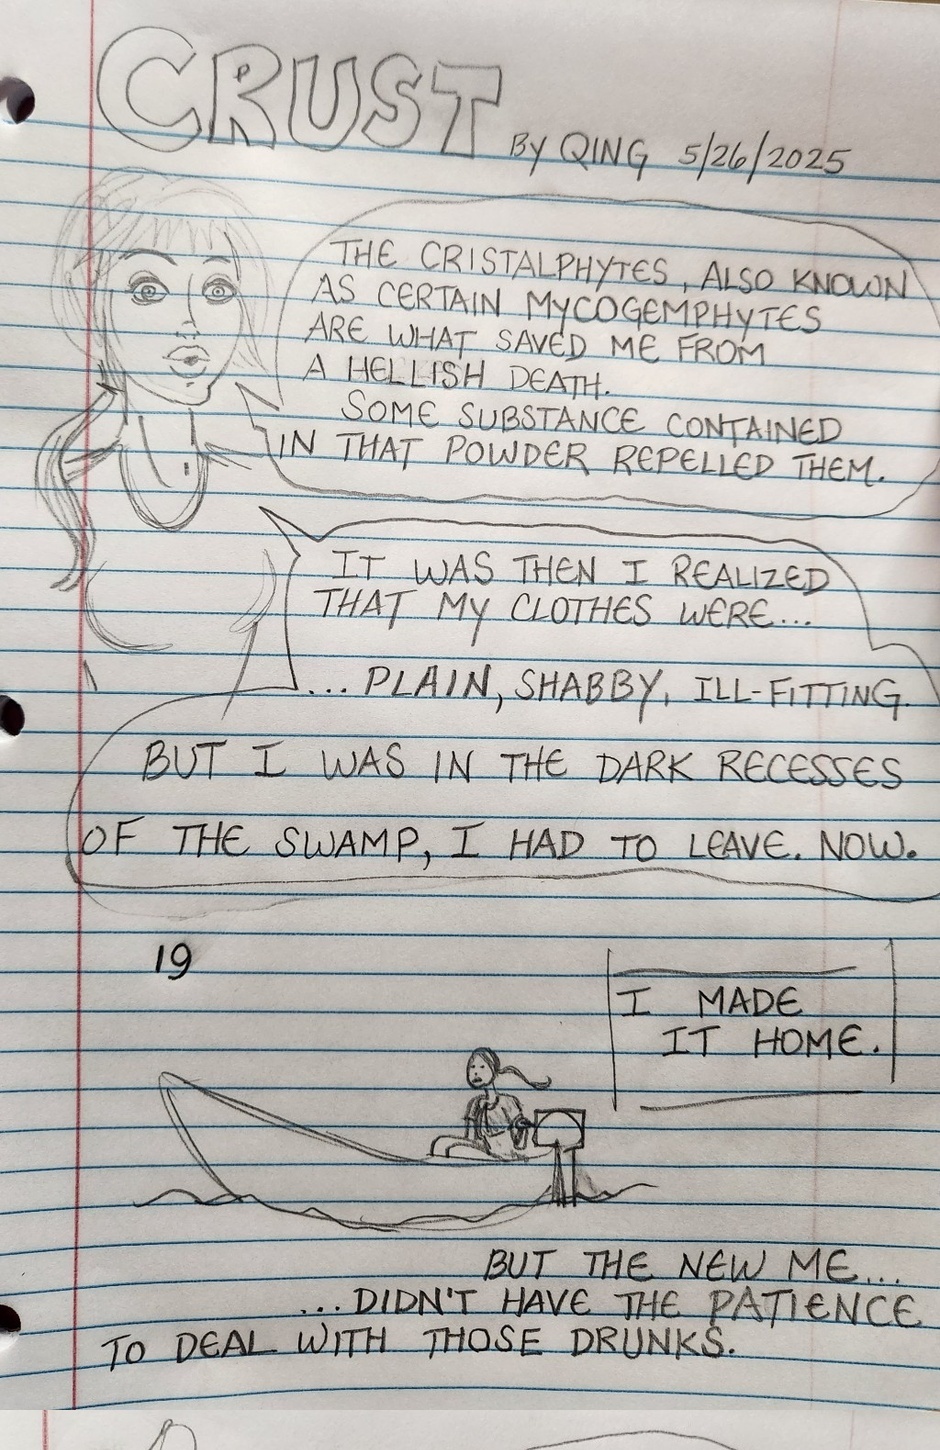 CRUST
BY QING 5/26/2025
THE CRISTALPHYTES, ALSO KNOWN
AS CERTAIN MYCOGEMPHYTES
ARE WHAT SAVED ME FROM
A HELLISH DEATH.
SOME SUBSTANCE CONTAINED
IN THAT POWDER REPELLED THEM.
IT WAS THEN I REALIZED
THAT MY CLOTHES WERE...
...PLAIN, SHABBY, ILL-FITTING.
BUT I WAS IN THE DARK RECESSES
OF THE SWAMP, I HAD TO LEAVE. NOW.
19
I MADE
IT HOME.
BUT THE NEW ME...
...DIDN'T HAVE THE PATIENCE
TO DEAL WITH THOSE DRUNKS.